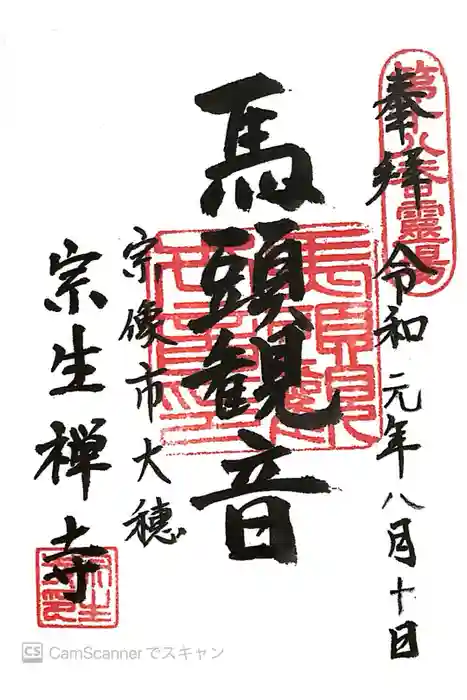 奉拝 令和元年八月十日
馬頭観音
宗像市大穂
宗生禅寺
CS CamScannerでスキャン